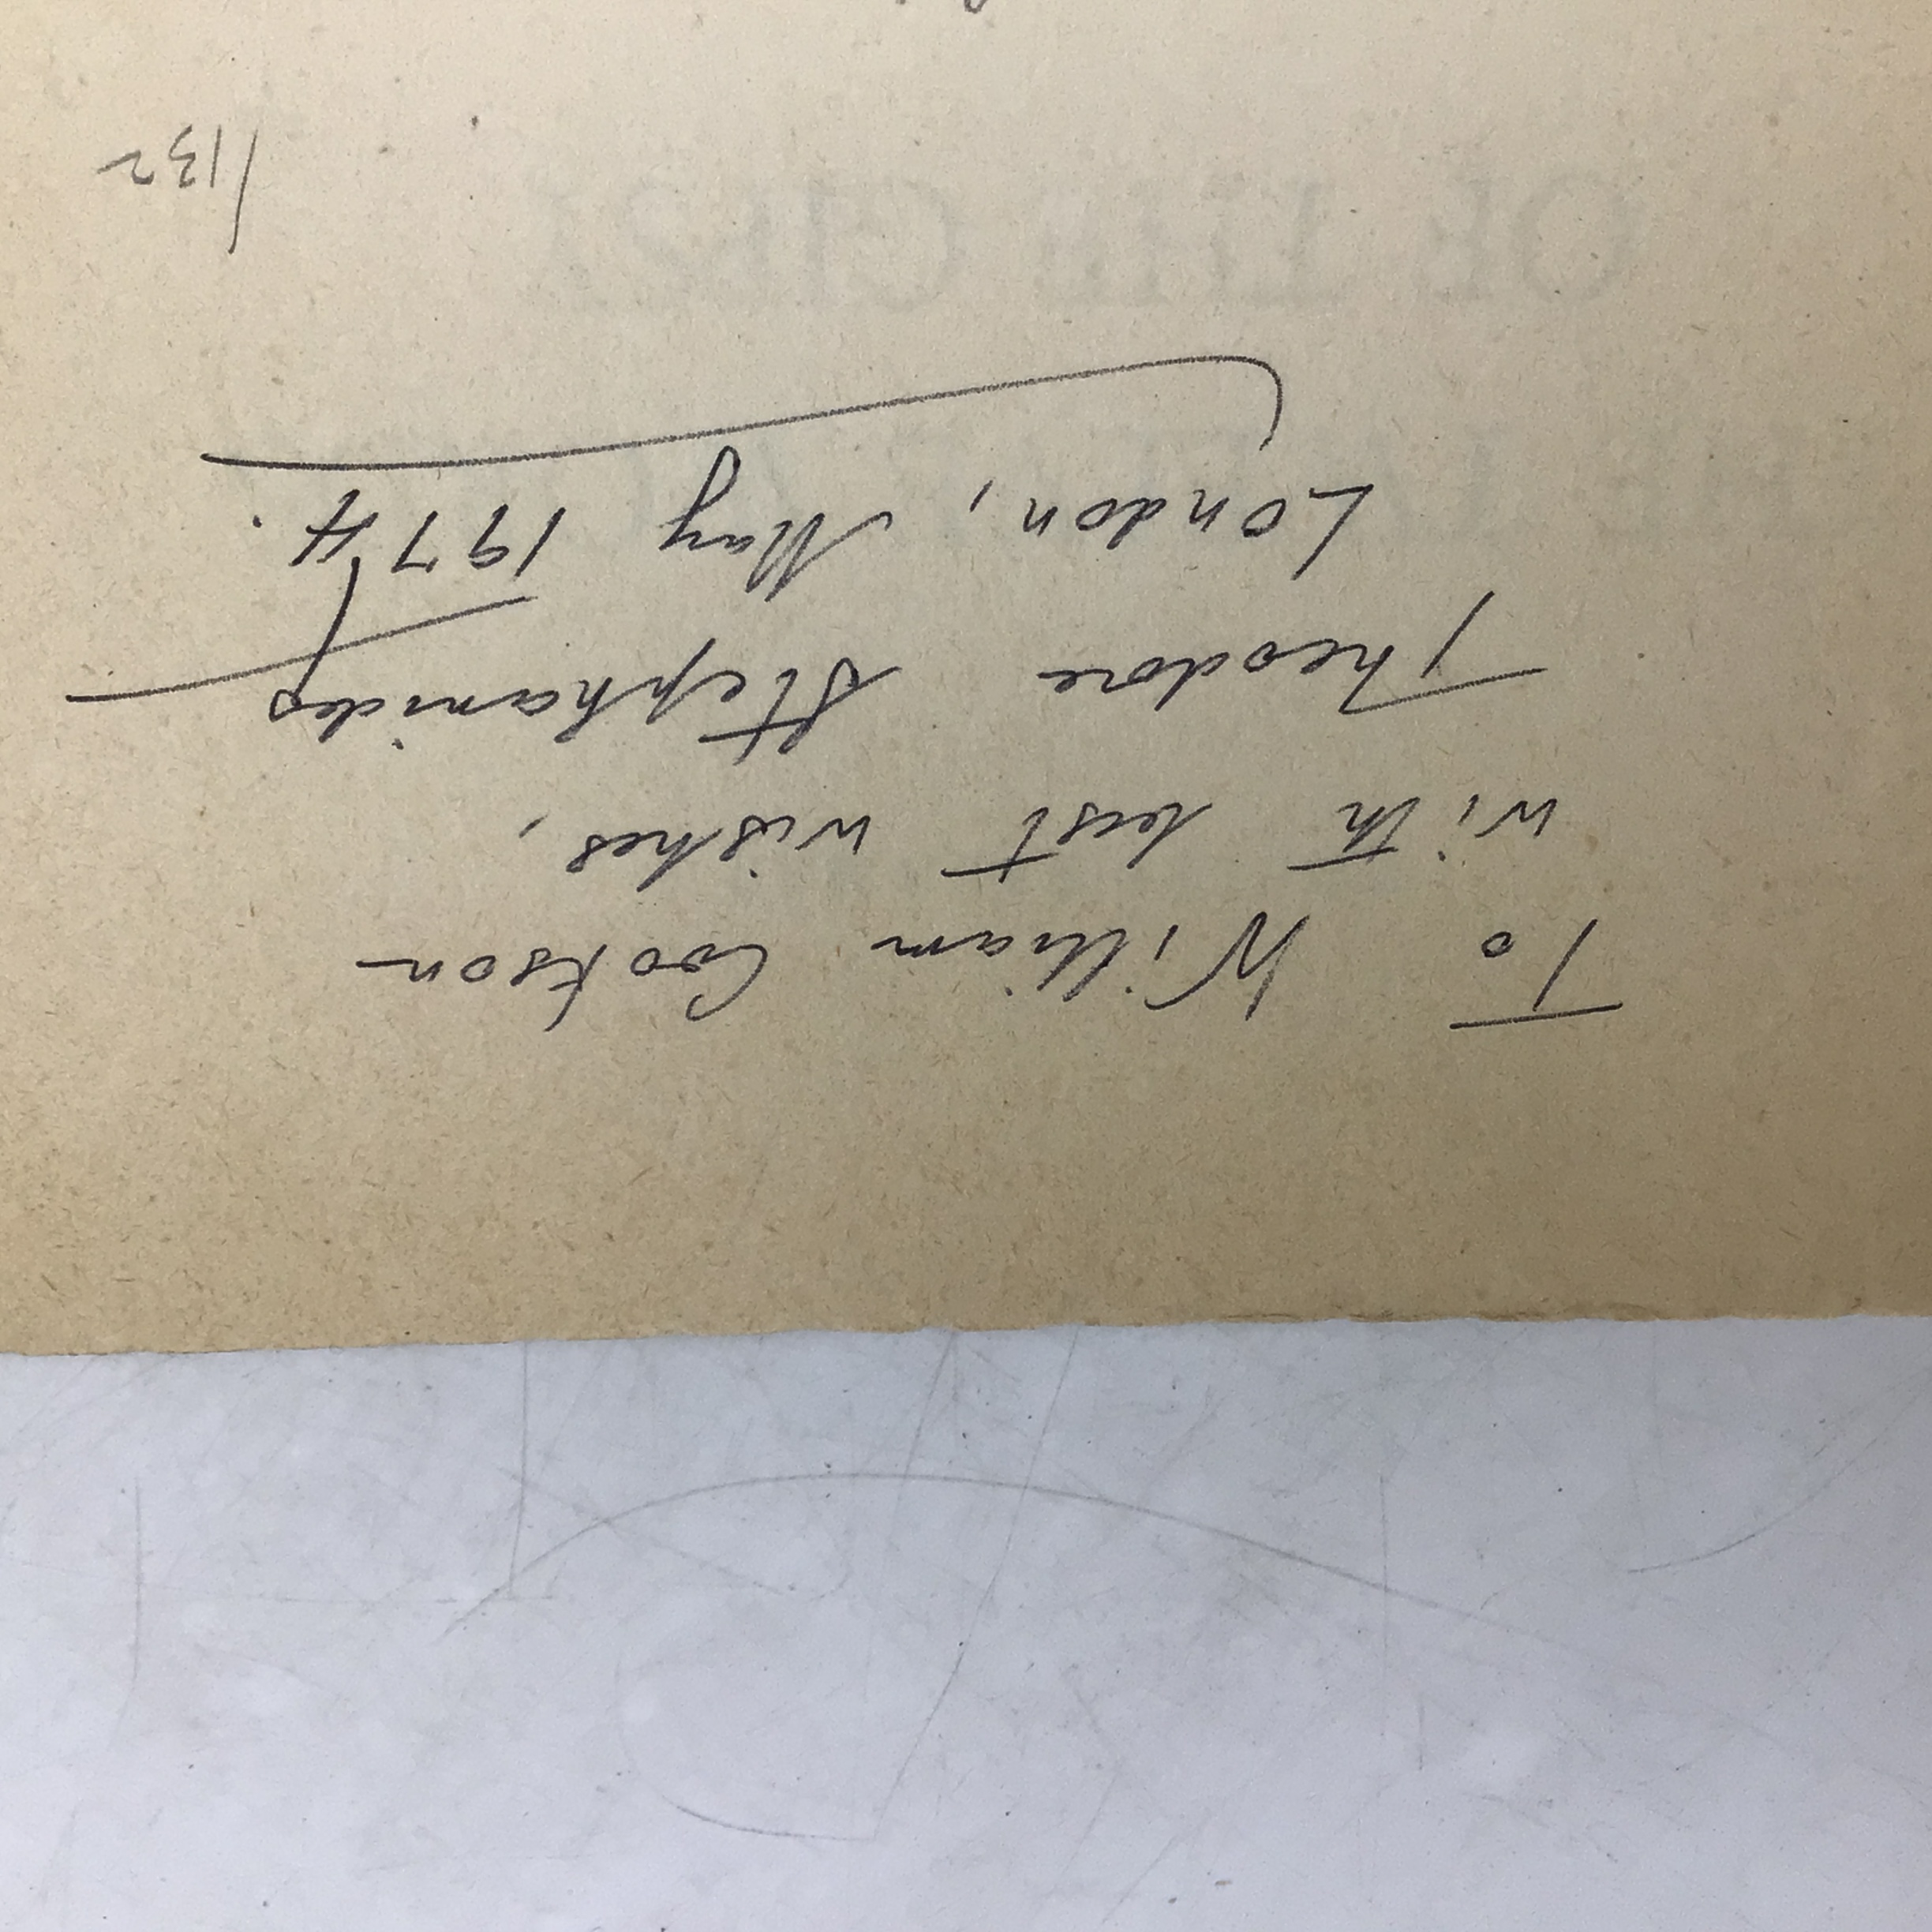 To William Cookson
with best wishes,
Theodore Stephanides
London, May 1974.
/132